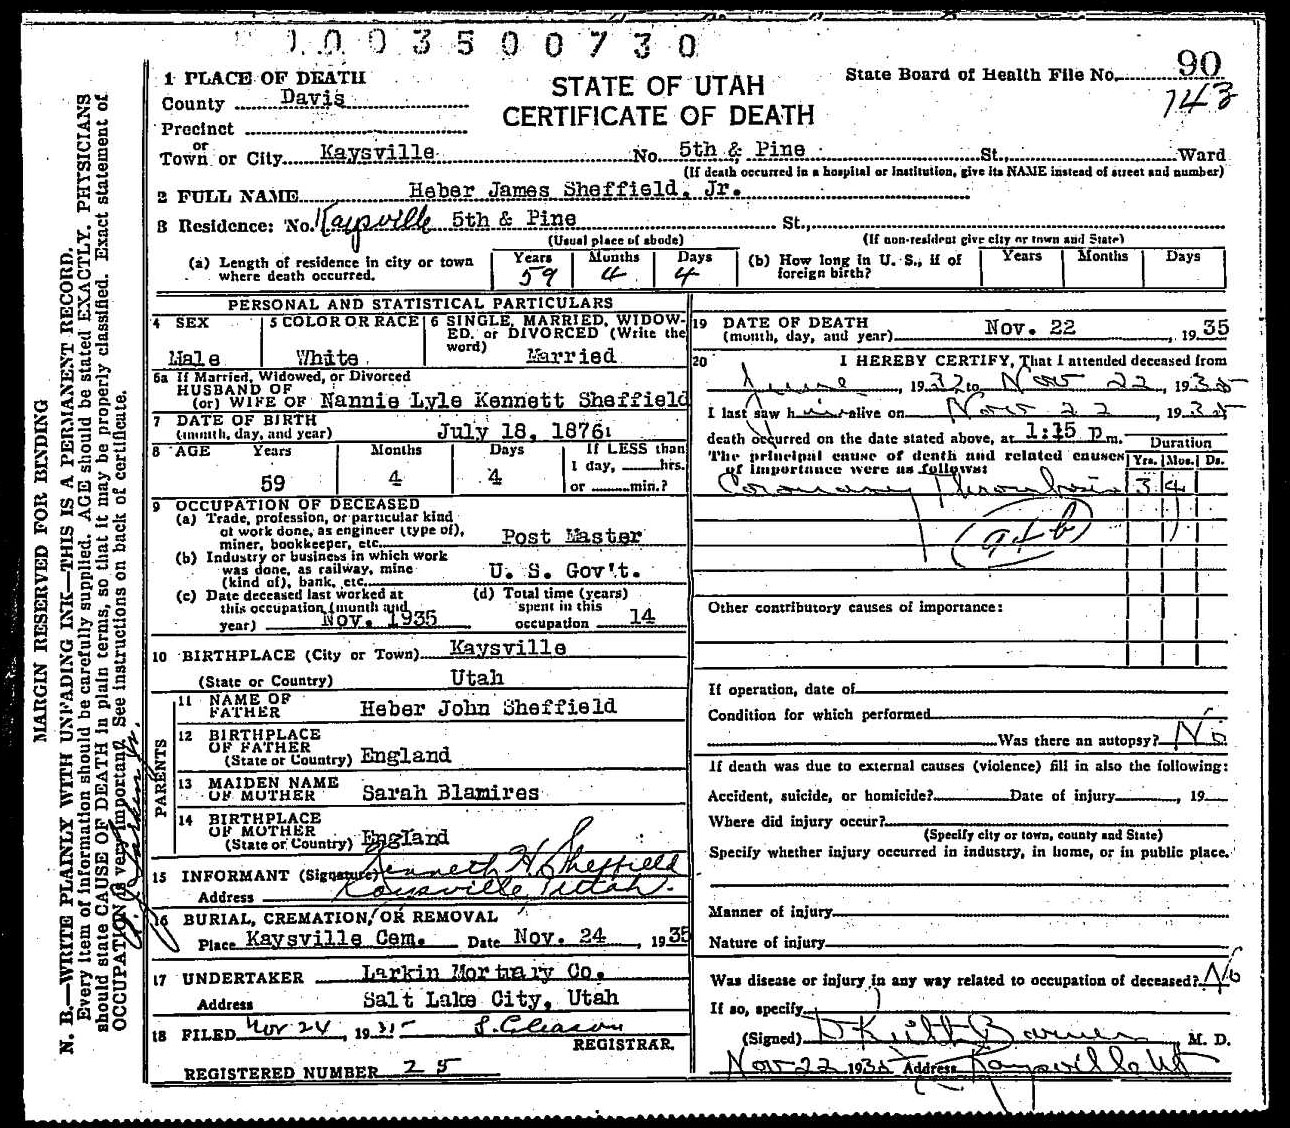 1003500730
1 PLACE OF DEATH
County Davis
STATE OF UTAH
CERTIFICATE OF DEATH
State Board of Health File No. 90
143
Precinct
or
Town or City Kaysville No. 5th & Pine St., Ward
(If death occurred in a hospital or institution, give its NAME instead of street and number)
2 FULL NAME Heber James Sheffield, Jr.
3 Residence: No. Kaysville 5th & Pine St.,
(Usual place of abode) (If non-resident give city or town and State)
(a) Length of residence in city or town where death occurred. Years 59 Months 4 Days 4 (b) How long in U. S., if of foreign birth? Years Months Days
PERSONAL AND STATISTICAL PARTICULARS
4 SEX Male
5 COLOR OR RACE White
6 SINGLE, MARRIED, WIDOW-
ED, or DIVORCED (Write the
word) Married
6a If Married, Widowed, or Divorced
HUSBAND OF
(or) WIFE OF Nannie Lyle Kennett Sheffield
7 DATE OF BIRTH
(month, day, and year) July 18, 1876
8 AGE Years 59 Months 4 Days 4 If LESS than
1 day, hrs.
or min.?
9 OCCUPATION OF DECEASED
(a) Trade, profession, or particular kind
of work done, as engineer (type of),
miner, bookkeeper, etc. Post Master
(b) Industry or business in which work
was done, as railway, mine
(kind of), bank, etc. U. S. Gov't.
(c) Date deceased last worked at
this occupation (month and
year) Nov. 1935
(d) Total time (years)
spent in this
occupation 14
10 BIRTHPLACE (City or Town) Kaysville
(State or Country) Utah
PARENTS
11 NAME OF
FATHER Heber John Sheffield
12 BIRTHPLACE
OF FATHER
(State or Country) England
13 MAIDEN NAME
OF MOTHER Sarah Blamires
14 BIRTHPLACE
OF MOTHER
(State or Country) England
15 INFORMANT (Signature) Kenneth H. Sheffield
Address Kaysville, Utah.
16 BURIAL, CREMATION, OR REMOVAL
Place Kaysville Cem. Date Nov. 24, 1935
17 UNDERTAKER Larkin Mortuary Co.
Address Salt Lake City, Utah
18 FILED Nov 24, 1935 S. Gleason
REGISTRAR.
REGISTERED NUMBER 25
19 DATE OF DEATH
(month, day, and year) Nov. 22, 1935
20 I HEREBY CERTIFY, That I attended deceased from
June, 1932 to Nov 22, 1935
I last saw him alive on Nov 22, 1935
death occurred on the date stated above, at 1:15 p m.
Duration
The principal cause of death and related causes
of importance were as follows:
Yrs. Mos. Ds.
Coronary Thrombosis 3 4
a+b
Other contributory causes of importance:
If operation, date of
Condition for which performed
Was there an autopsy? No
If death was due to external causes (violence) fill in also the following:
Accident, suicide, or homicide? Date of injury, 19
Where did injury occur?
(Specify city or town, county and State)
Specify whether injury occurred in industry, in home, or in public place.
Manner of injury
Nature of injury
Was disease or injury in any way related to occupation of deceased? No
If so, specify
(Signed) D Keith Barnes M. D.
Nov 22 1935 Address Kaysville Ut
MARGIN RESERVED FOR BINDING
N. B.—WRITE PLAINLY WITH UNFADING INK—THIS IS A PERMANENT RECORD.
Every item of information should be carefully supplied. AGE should be stated EXACTLY. PHYSICIANS
should state CAUSE OF DEATH in plain terms, so that it may be properly classified. Exact statement of
OCCUPATION is very important. See instructions on back of certificate.